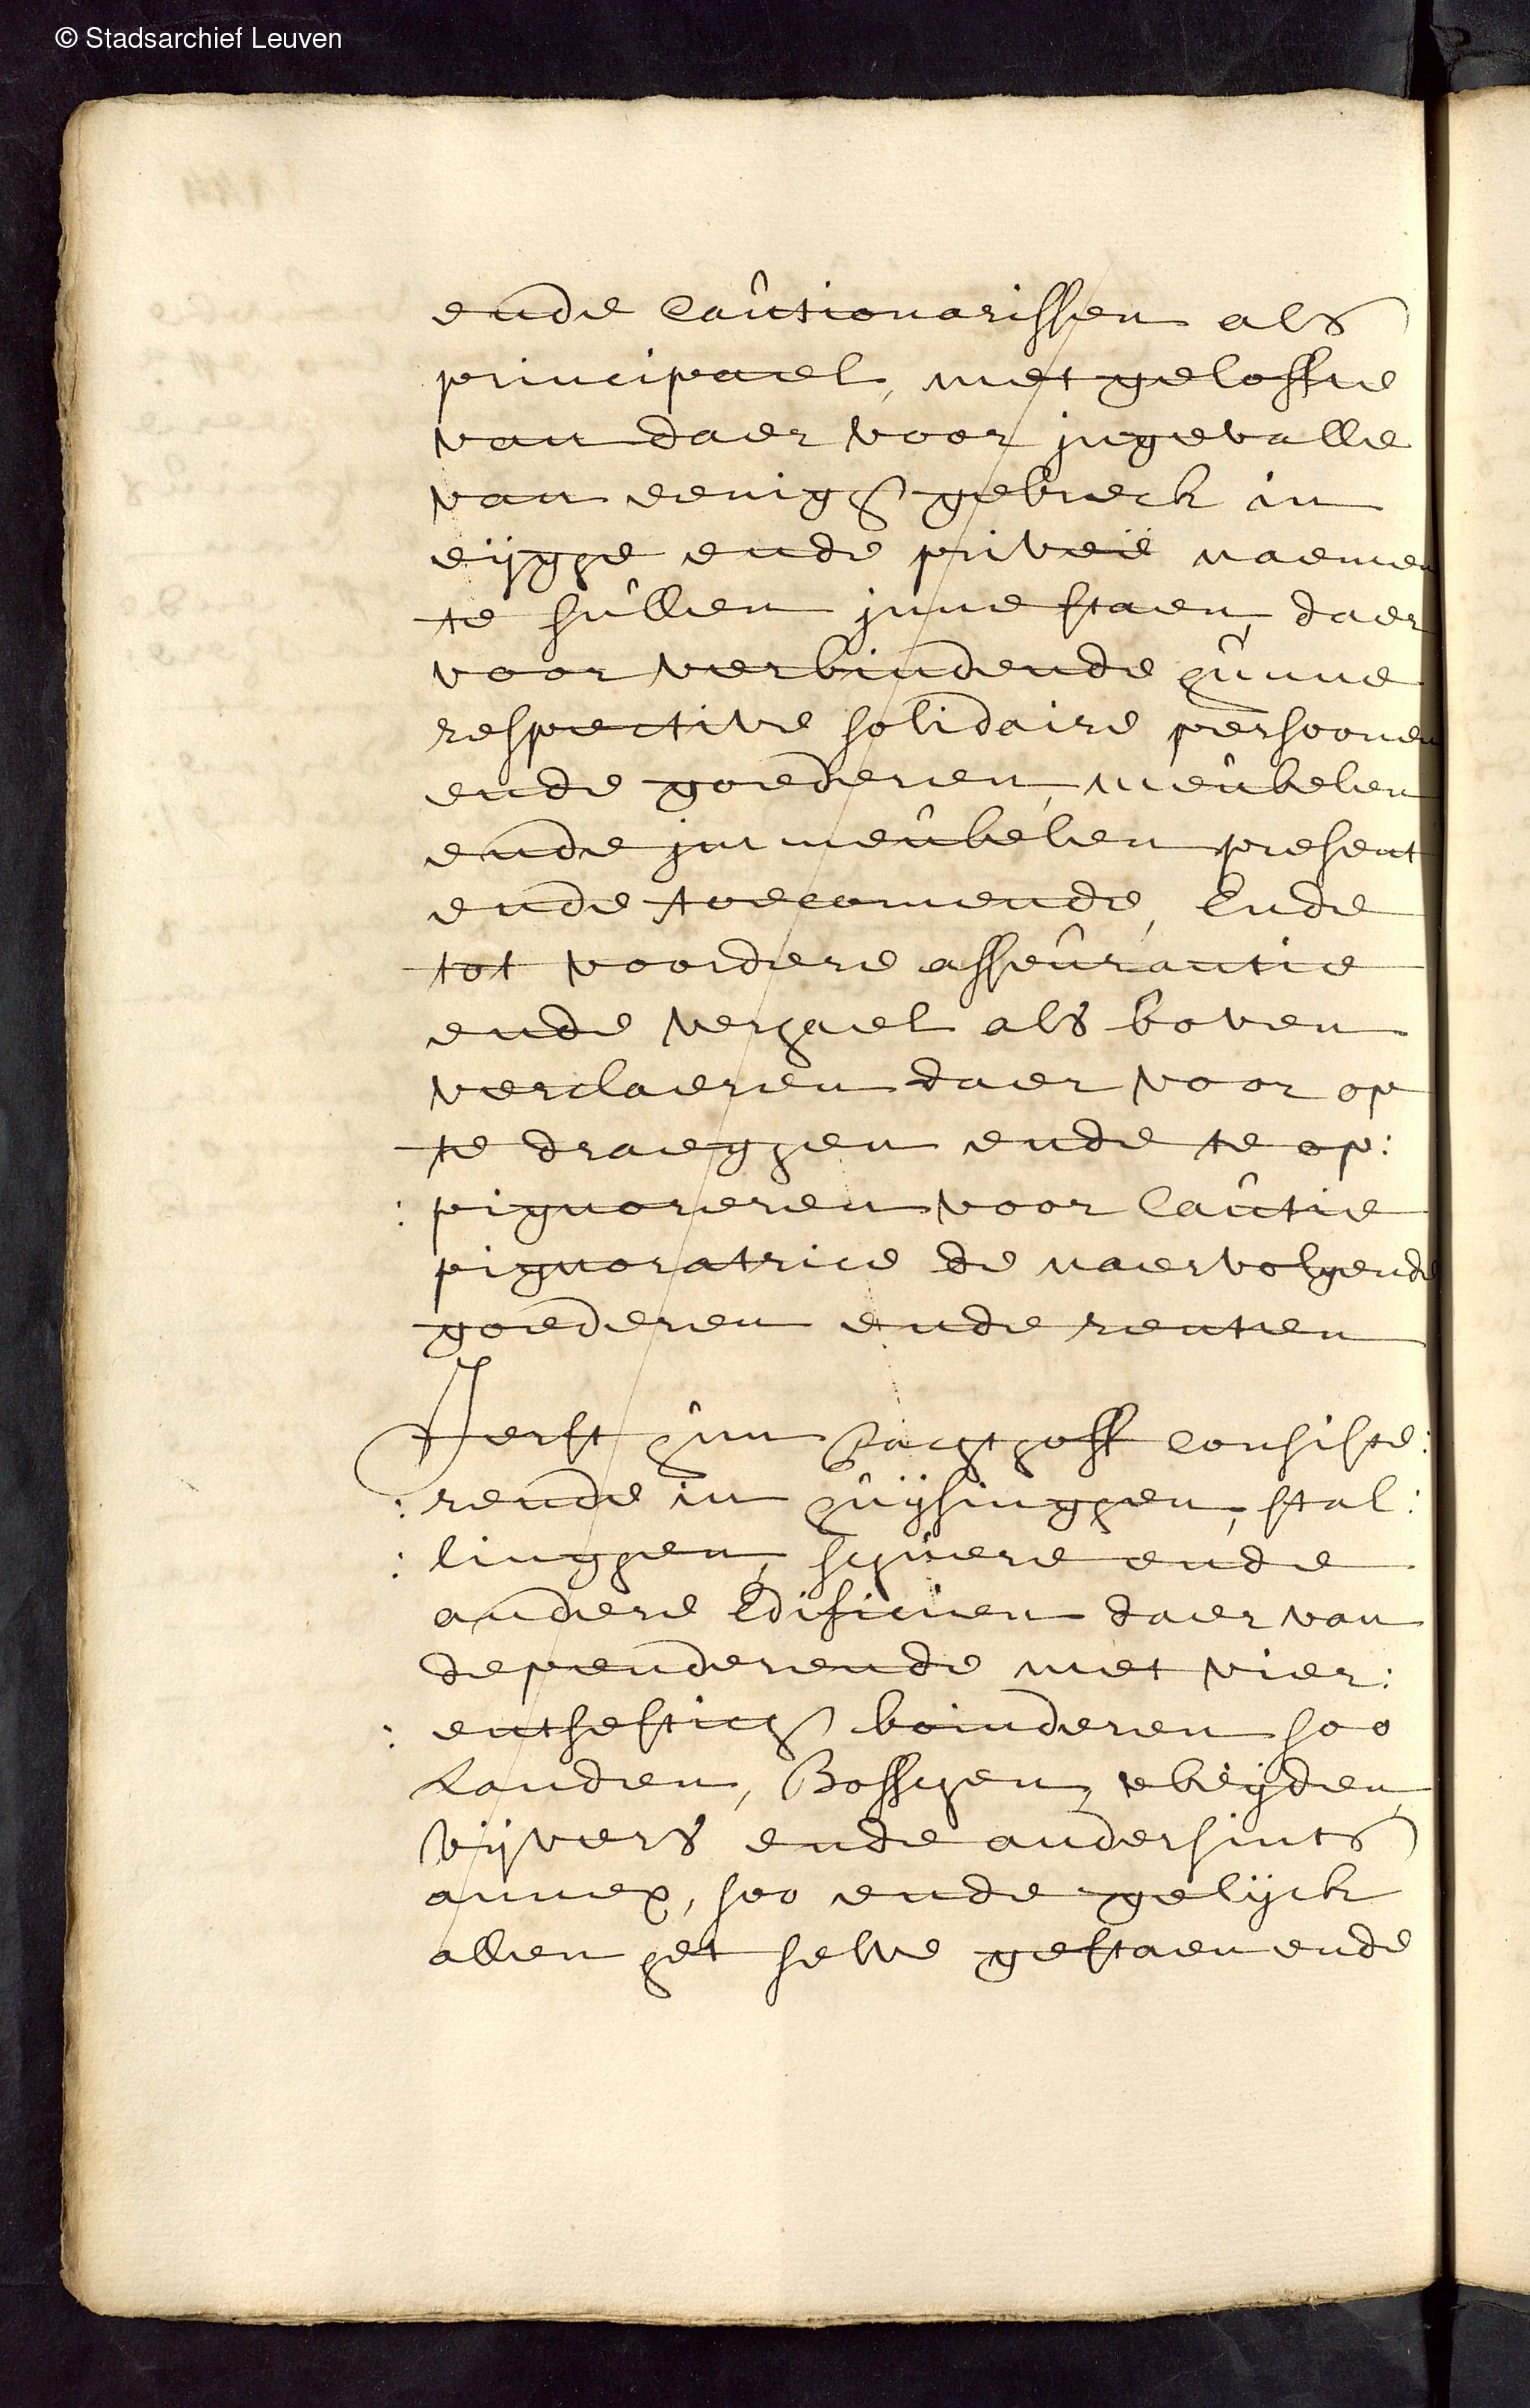 © Stadsarchief Leuven
ende Cautionarissen als
principael, met geloffte
van daer voor jngevalle
van eenigh gebreck in
eijghe ende priveé naemen
te sullen jnne staen, daer
voor verbindende hunne
respective solidaire persoonen
ende goederen, meubelen
ende jmmeubelen present
ende toecomende, Ende
tot voordere asseurantie
ende verhael als boven
verclaeren daer voor op
te draeghen ende te op:
: pignoreren voor Cautie
pignoratrice de naervolgende
goederen ende renten
Ierst hun Pachthoff consiste:
: rende in huijsinghen, stal:
: linghen, schuere ende
andere Edificien daer van
dependerende met vier:
: entsestich boinderen soo
Landen, Bosschen, Weijden,
Vijvers ende andersints
annex, soo ende gelijck
allen het selve gestaen ende